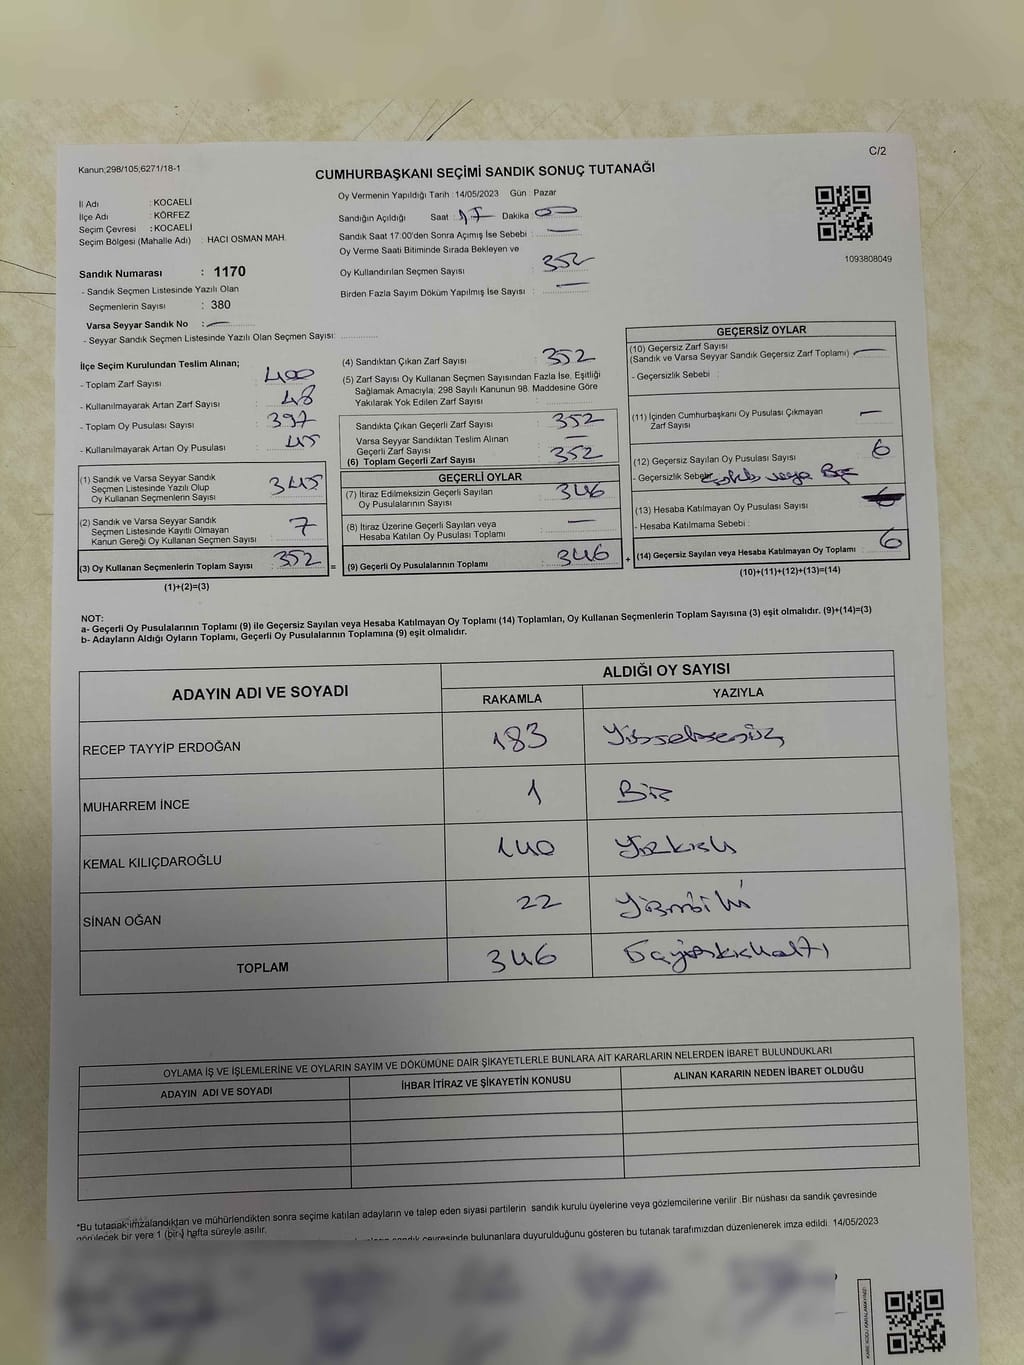 C/2
Kanun;298/105;6271/18-1
CUMHURBAŞKANI SEÇİMİ SANDIK SONUÇ TUTANAĞI
İl Adı : KOCAELİ
İlçe Adı : KÖRFEZ
Seçim Çevresi : KOCAELİ
Seçim Bölgesi (Mahalle Adı) : HACI OSMAN MAH.
Sandık Numarası : 1170
- Sandık Seçmen Listesinde Yazılı Olan
Seçmenlerin Sayısı : 380
Varsa Seyyar Sandık No : —
- Seyyar Sandık Seçmen Listesinde Yazılı Olan Seçmen Sayısı:
Oy Vermenin Yapıldığı Tarih : 14/05/2023 Gün : Pazar
Sandığın Açıldığı Saat 17 Dakika 00
Sandık Saat 17:00'den Sonra Açımış İse Sebebi : —
Oy Verme Saati Bitiminde Sırada Bekleyen ve
Oy Kullandırılan Seçmen Sayısı : 352
Birden Fazla Sayım Döküm Yapılmış İse Sayısı : —
1093808049
İlçe Seçim Kurulundan Teslim Alınan;
- Toplam Zarf Sayısı : 400
- Kullanılmayarak Artan Zarf Sayısı : 48
- Toplam Oy Pusulası Sayısı : 397
- Kullanılmayarak Artan Oy Pusulası : 45
(1) Sandık ve Varsa Seyyar Sandık
Seçmen Listesinde Yazılı Olup
Oy Kullanan Seçmenlerin Sayısı : 345
(2) Sandık ve Varsa Seyyar Sandık
Seçmen Listesinde Kayıtlı Olmayan
Kanun Gereği Oy Kullanan Seçmen Sayısı : 7
(3) Oy Kullanan Seçmenlerin Toplam Sayısı : 352
(1)+(2)=(3)
=
(4) Sandıktan Çıkan Zarf Sayısı : 352
(5) Zarf Sayısı Oy Kullanan Seçmen Sayısından Fazla İse, Eşitliği
Sağlamak Amacıyla; 298 Sayılı Kanunun 98. Maddesine Göre
Yakılarak Yok Edilen Zarf Sayısı :
Sandıkta Çıkan Geçerli Zarf Sayısı : 352
Varsa Seyyar Sandıktan Teslim Alınan
Geçerli Zarf Sayısı : —
(6) Toplam Geçerli Zarf Sayısı : 352
GEÇERLİ OYLAR
(7) İtiraz Edilmeksizin Geçerli Sayılan
Oy Pusulalarının Sayısı : 346
(8) İtiraz Üzerine Geçerli Sayılan veya
Hesaba Katılan Oy Pusulası Toplamı : —
(9) Geçerli Oy Pusulalarının Toplamı : 346
+
GEÇERSİZ OYLAR
(10) Geçersiz Zarf Sayısı
(Sandık ve Varsa Seyyar Sandık Geçersiz Zarf Toplamı) —
- Geçersizlik Sebebi :
(11) İçinden Cumhurbaşkanı Oy Pusulası Çıkmayan
Zarf Sayısı : —
(12) Geçersiz Sayılan Oy Pusulası Sayısı : 6
- Geçersizlik Sebebi : veya Boş
(13) Hesaba Katılmayan Oy Pusulası Sayısı :
- Hesaba Katılmama Sebebi :
(14) Geçersiz Sayılan veya Hesaba Katılmayan Oy Toplamı : 6
(10)+(11)+(12)+(13)=(14)
NOT:
a- Geçerli Oy Pusulalarının Toplamı (9) ile Geçersiz Sayılan veya Hesaba Katılmayan Oy Toplamı (14) Toplamları, Oy Kullanan Seçmenlerin Toplam Sayısına (3) eşit olmalıdır. (9)+(14)=(3)
b- Adayların Aldığı Oyların Toplamı, Geçerli Oy Pusulalarının Toplamına (9) eşit olmalıdır.
ADAYIN ADI VE SOYADI ALDIĞI OY SAYISI
RAKAMLA YAZIYLA
RECEP TAYYİP ERDOĞAN 183 Yüzseksenüç
MUHARREM İNCE 1 Bir
KEMAL KILIÇDAROĞLU 140 Yüzkırk
SİNAN OĞAN 22
TOPLAM 346 Üçyüzkırkaltı
OYLAMA İŞ VE İŞLEMLERİNE VE OYLARIN SAYIM VE DÖKÜMÜNE DAİR ŞİKAYETLERLE BUNLARA AİT KARARLARIN NELERDEN İBARET BULUNDUKLARI
ADAYIN ADI VE SOYADI İHBAR İTİRAZ VE ŞİKAYETİN KONUSU ALINAN KARARIN NEDEN İBARET OLDUĞU
*Bu tutanak imzalandıktan ve mühürlendikten sonra seçime katılan adayların ve talep eden siyasi partilerin sandık kurulu üyelerine veya gözlemcilerine verilir .Bir nüshası da sandık çevresinde
görülecek bir yere 1 (bir) hafta süreyle asılır.
sandık çevresinde bulunanlara duyurulduğunu gösteren bu tutanak tarafımızdan düzenlenerek imza edildi. 14/05/2023